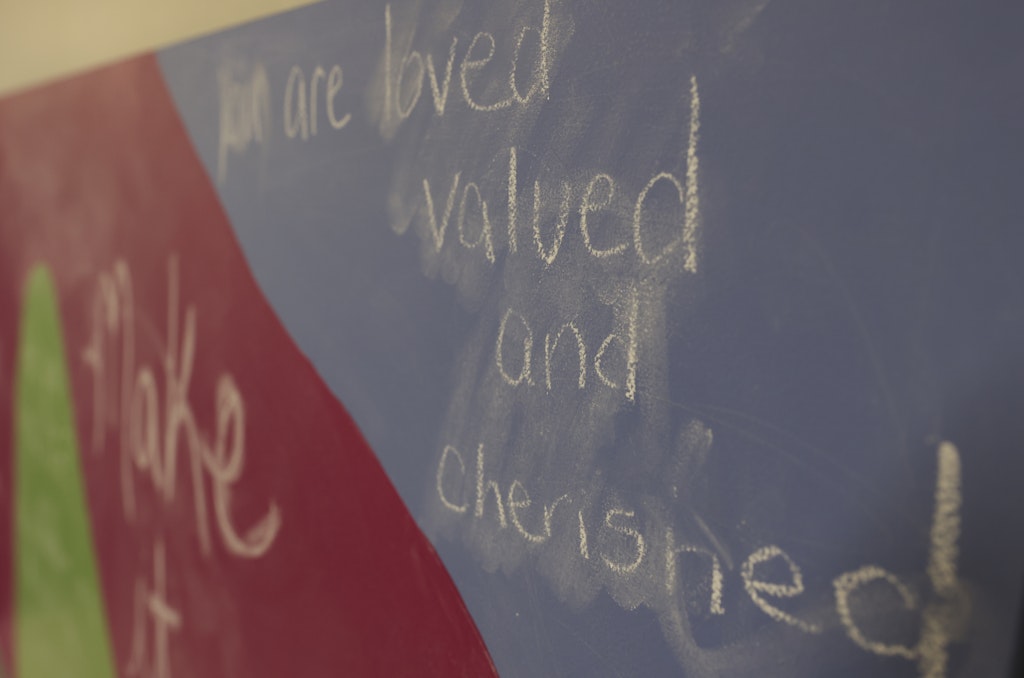 you are loved
valued
and
cherished
Make
it